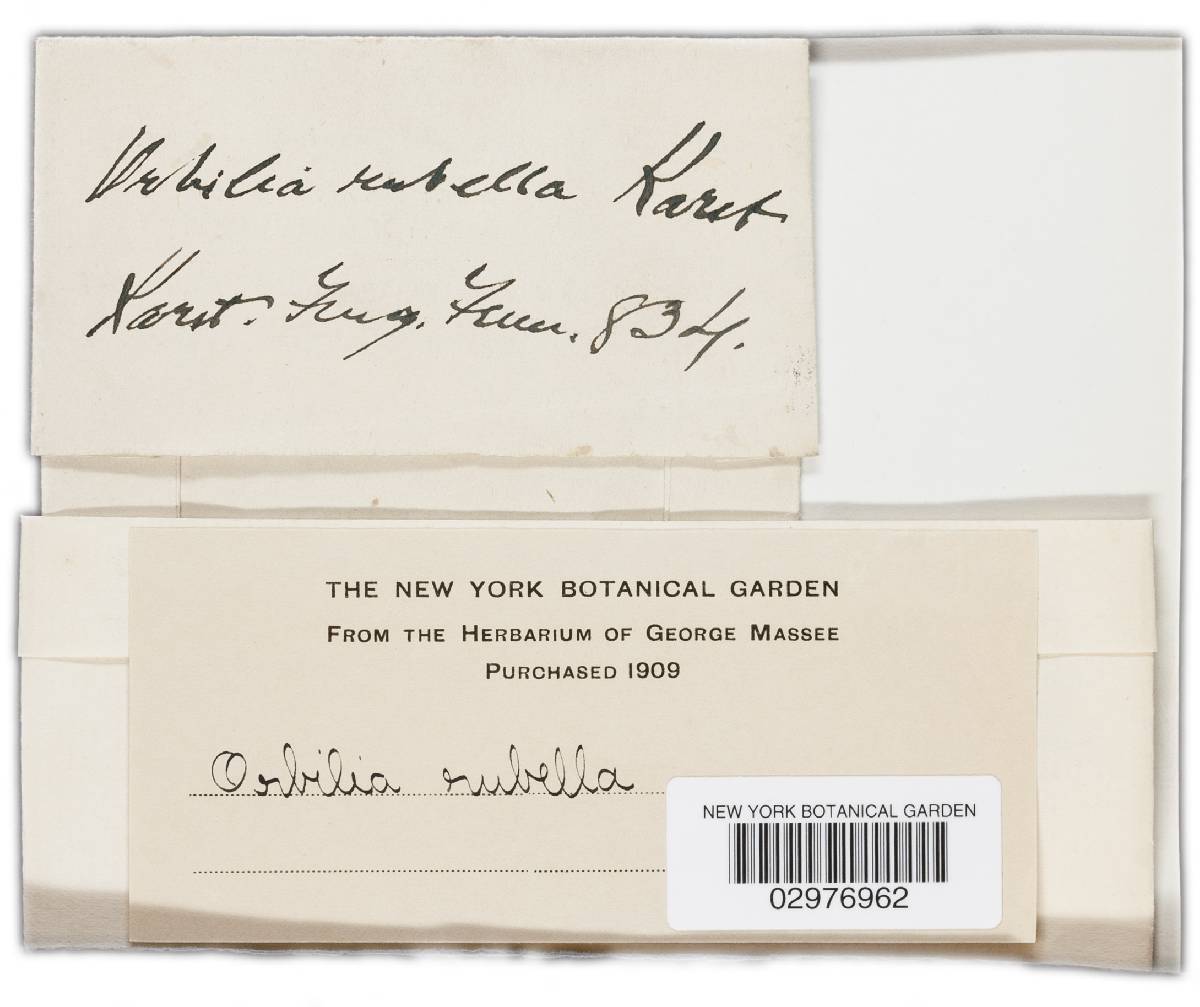 Orbilia rubella Karst
Karst. Fung. Fenn. 834.
THE NEW YORK BOTANICAL GARDEN
FROM THE HERBARIUM OF GEORGE MASSEE
PURCHASED 1909
Orbilia rubella
NEW YORK BOTANICAL GARDEN
02976962